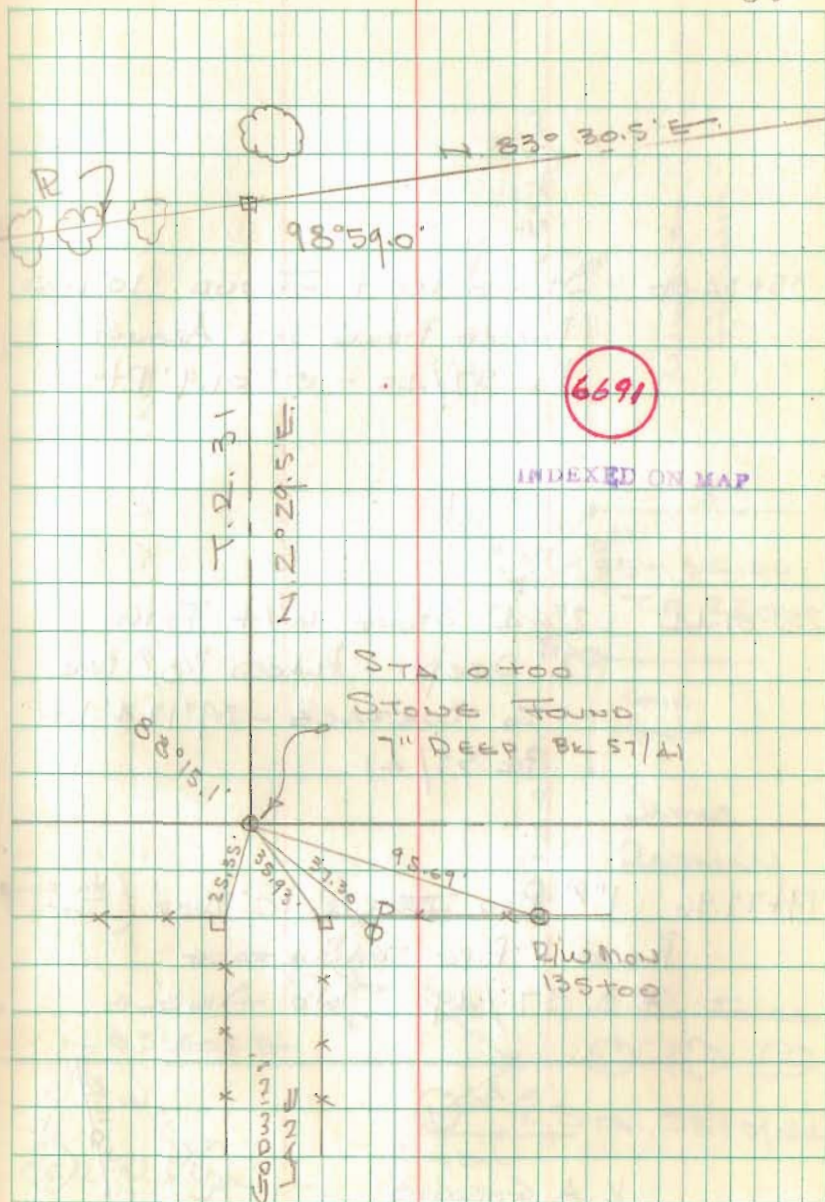 N. 83° 30.5' E.
98° 59.0'
6691
INDEXED ON MAP
T.R. 31
N. 2° 29.5' E.
STA 0+00
STONE FOUND
7" DEEP BK 57/41
88° 15.1'
25.35'
35.93'
37.30
95.69'
P
R/W MON
135+00
LANE